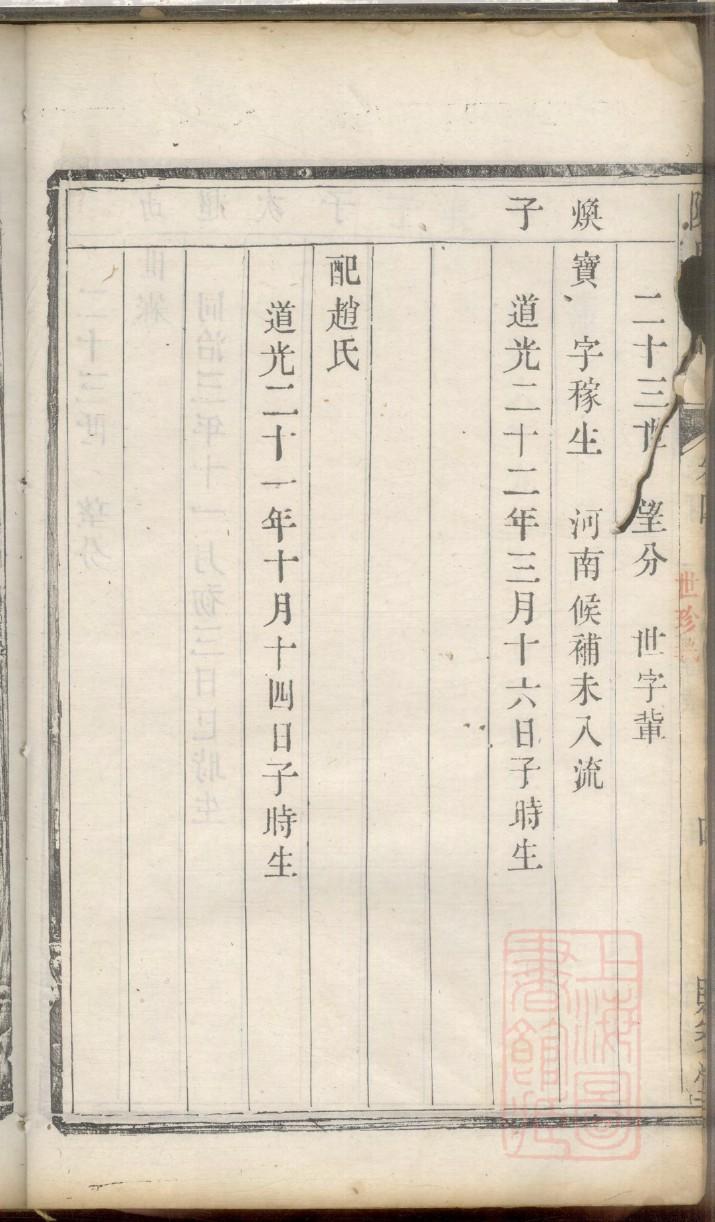 二十三世 望分 世字輩
煥寶 字稼生 河南候補未入流
子 道光二十二年三月十六日子時生
配趙氏
道光二十一年十月十四日子時生
世珍
上海圖書館藏